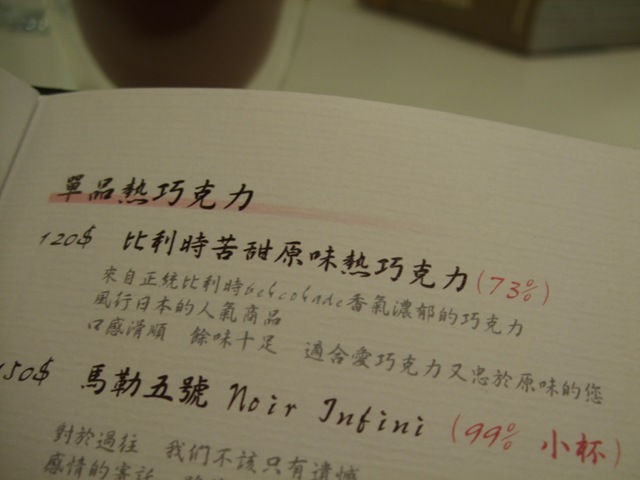 單品熱巧克力
120$ 比利時苦甜原味熱巧克力(73%)
來自正統比利時Belcolade香氣濃郁的巧克力
風行日本的人氣商品
口感滑順 餘味十足 適合愛巧克力又忠於原味的您
150$ 馬勒五號 Noir Infini (99% 小杯)
對於過往 我們不該只有遺憾
感情的寄託